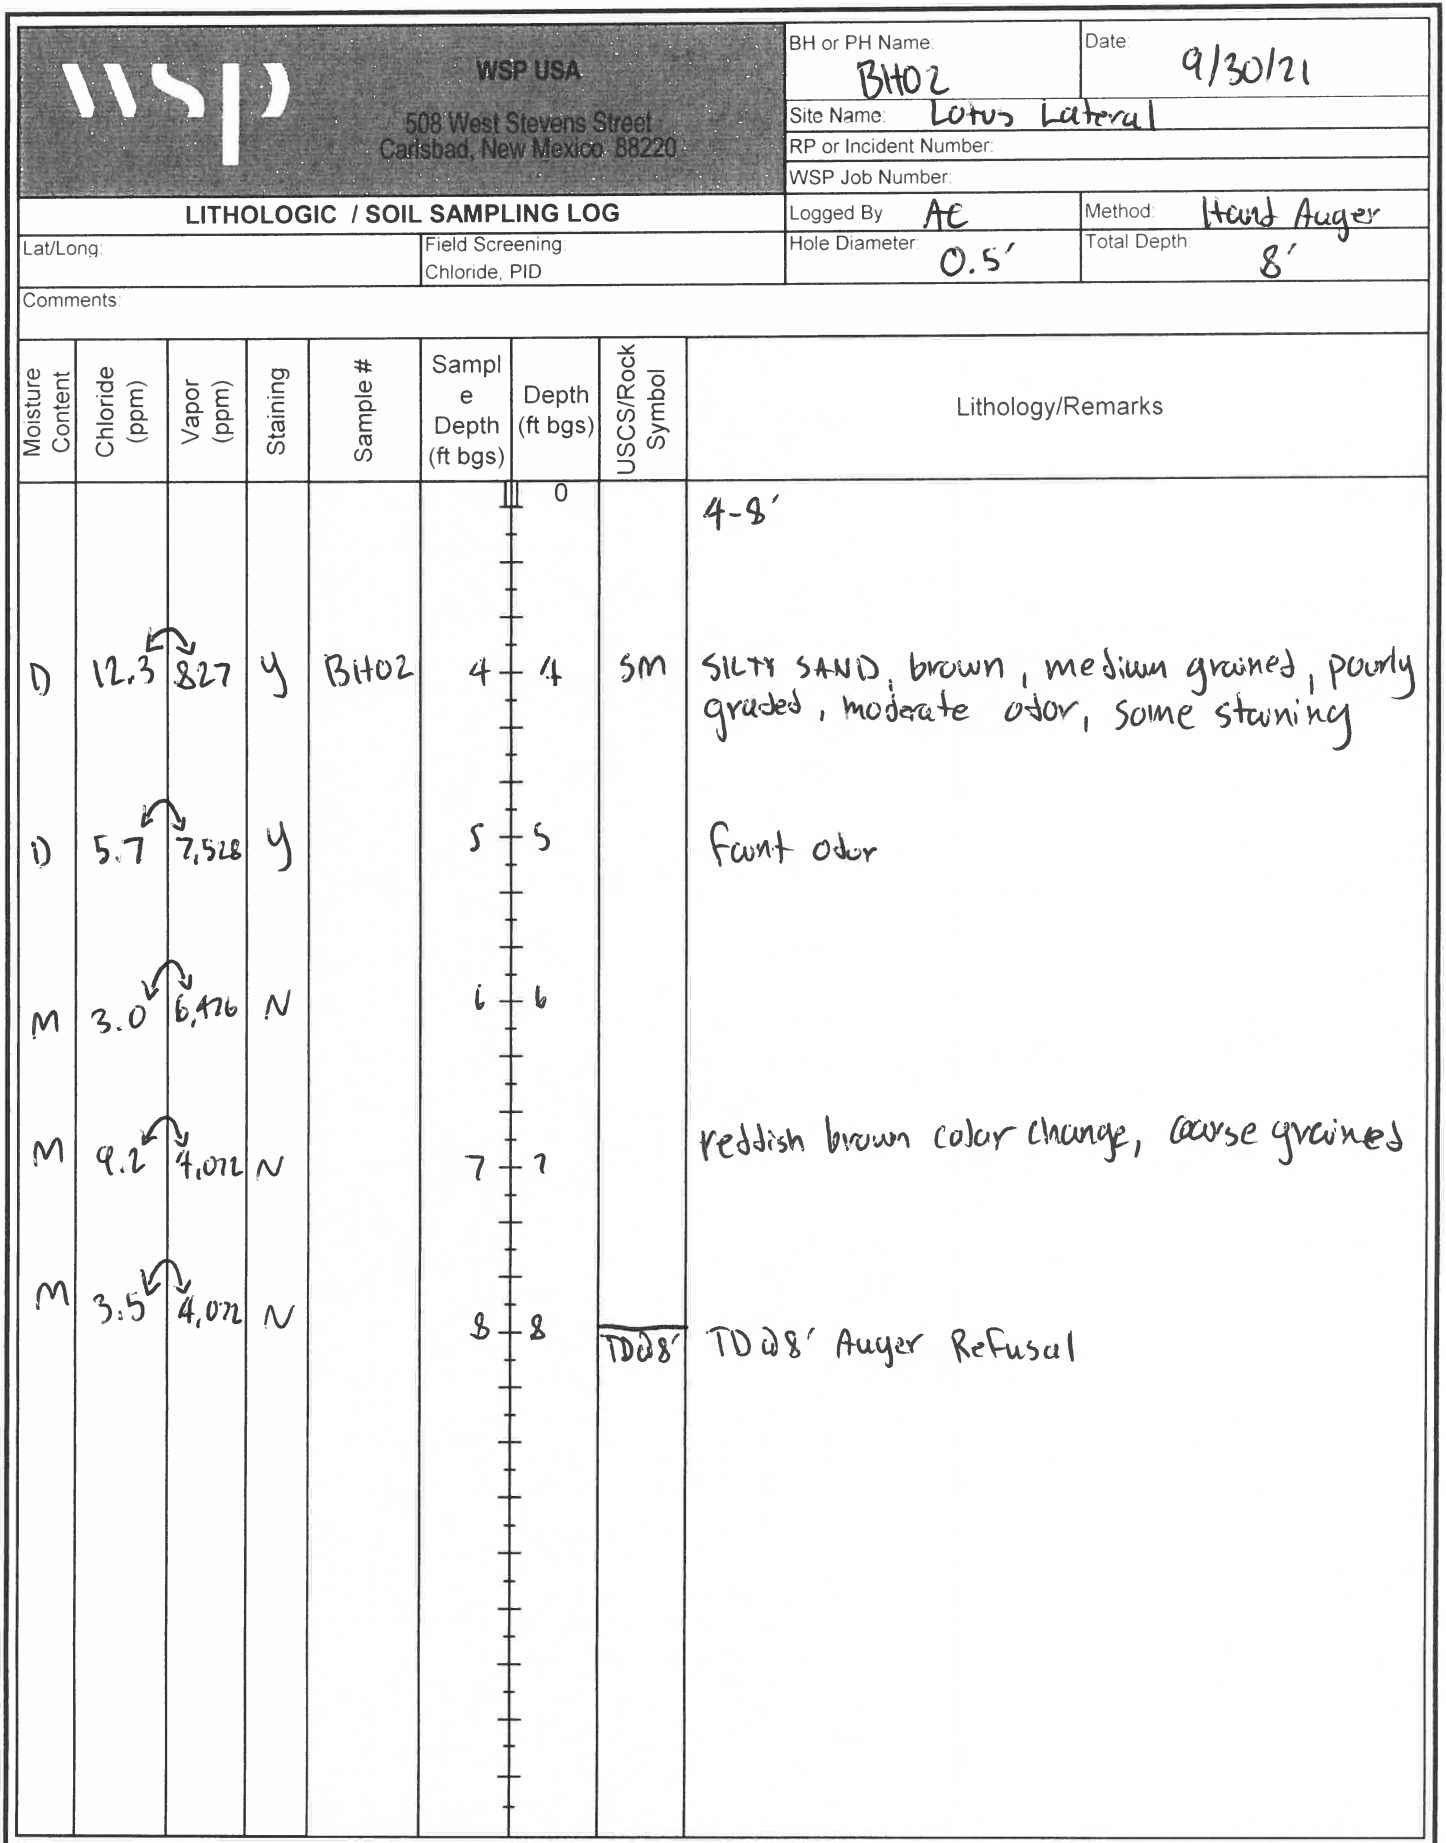 wsp
WSP USA
508 West Stevens Street
Carlsbad, New Mexico 88220
BH or PH Name: BH02
Date: 9/30/21
Site Name: Lotus Lateral
RP or Incident Number:
WSP Job Number:
LITHOLOGIC / SOIL SAMPLING LOG
Logged By AC
Method: Hand Auger
Lat/Long:
Field Screening:
Chloride, PID
Hole Diameter: 0.5'
Total Depth: 8'
Comments:
Moisture Content
Chloride (ppm)
Vapor (ppm)
Staining
Sample #
Sampl
e
Depth
(ft bgs)
Depth
(ft bgs)
USCS/Rock Symbol
Lithology/Remarks
0
4-8'
D 12.3 827 Y BH02 4 4 SM SILTY SAND, brown, medium grained, poorly
graded, moderate odor, some staining
D 5.7 7,528 Y 5 5 faint odor
M 3.0 6,476 N 6 6
M 9.2 4,072 N 7 7 reddish brown color change, coarse grained
M 3.5 4,072 N 8 8
TD@8' TD@8' Auger Refusal